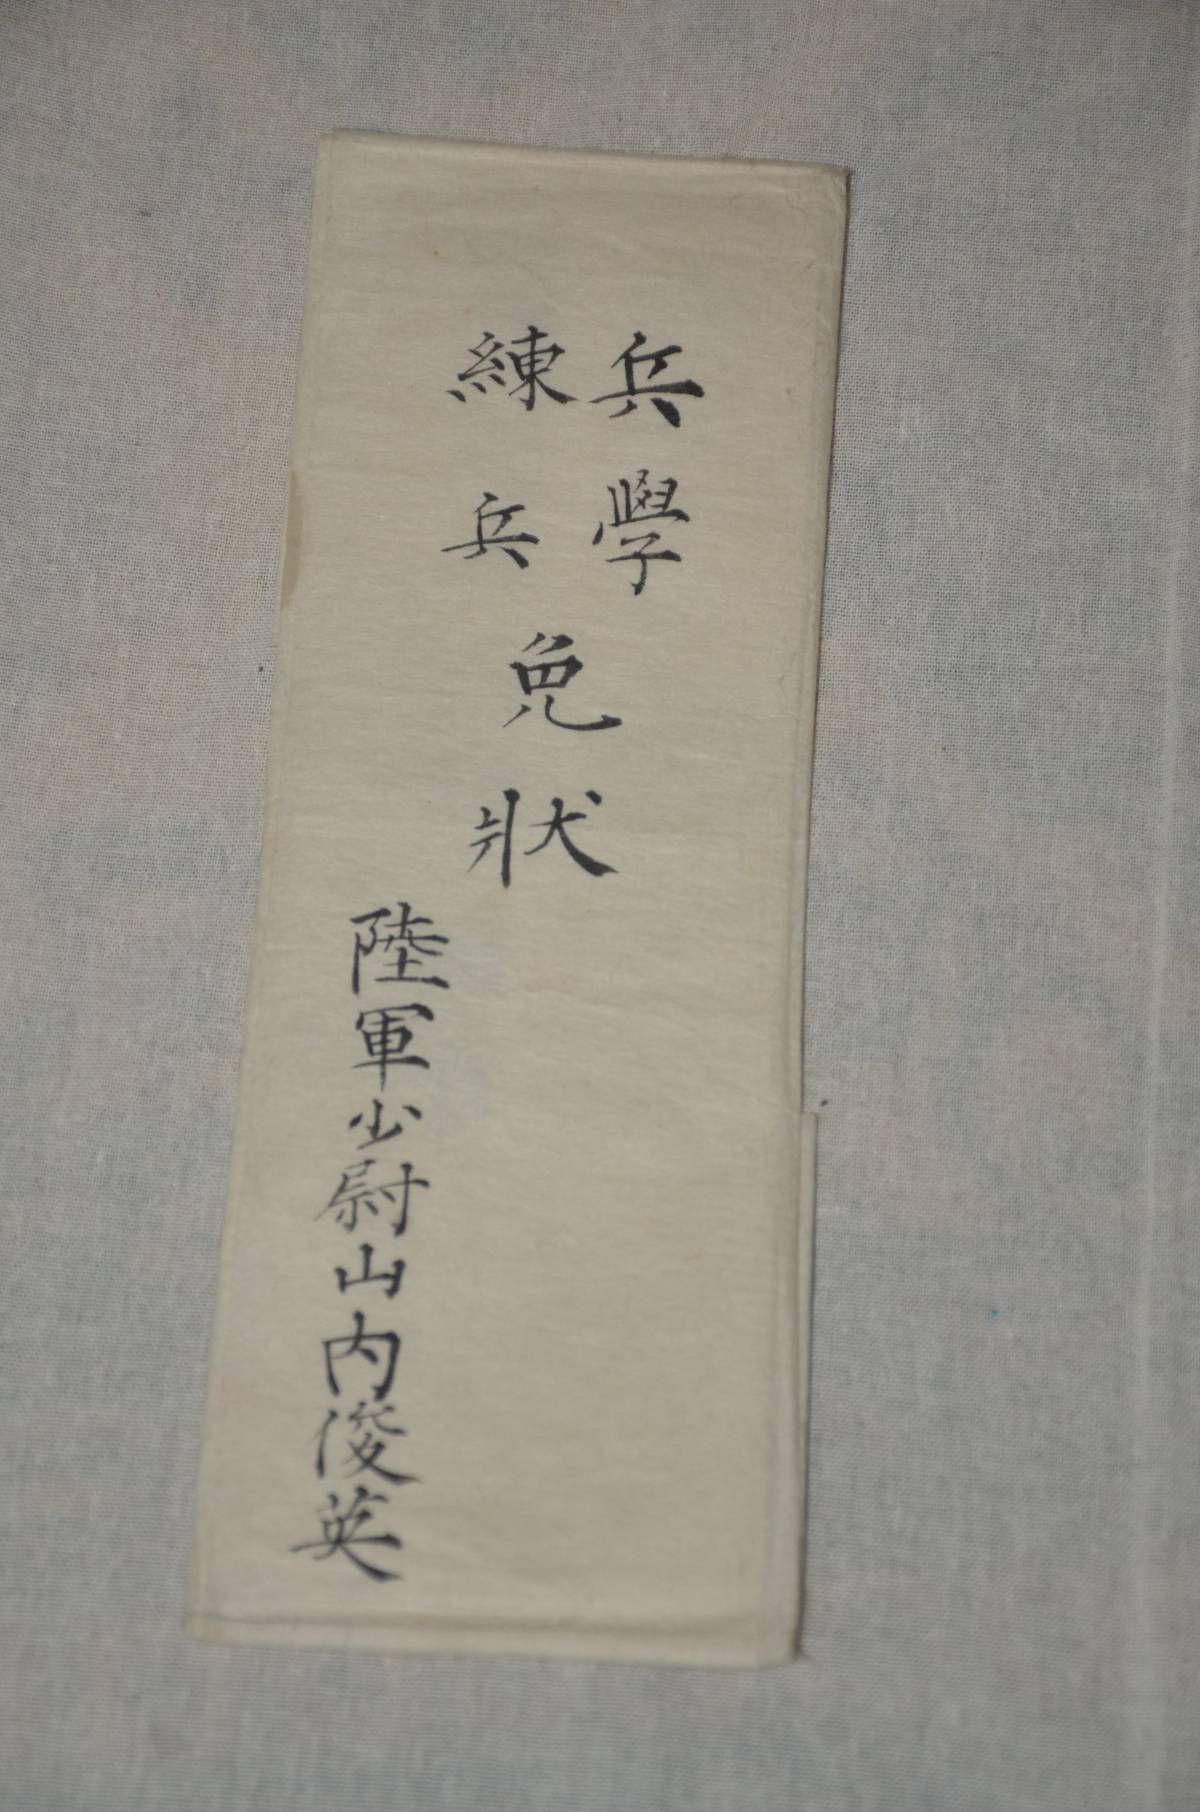 兵學
練兵
免狀
陸軍少尉山内俊英